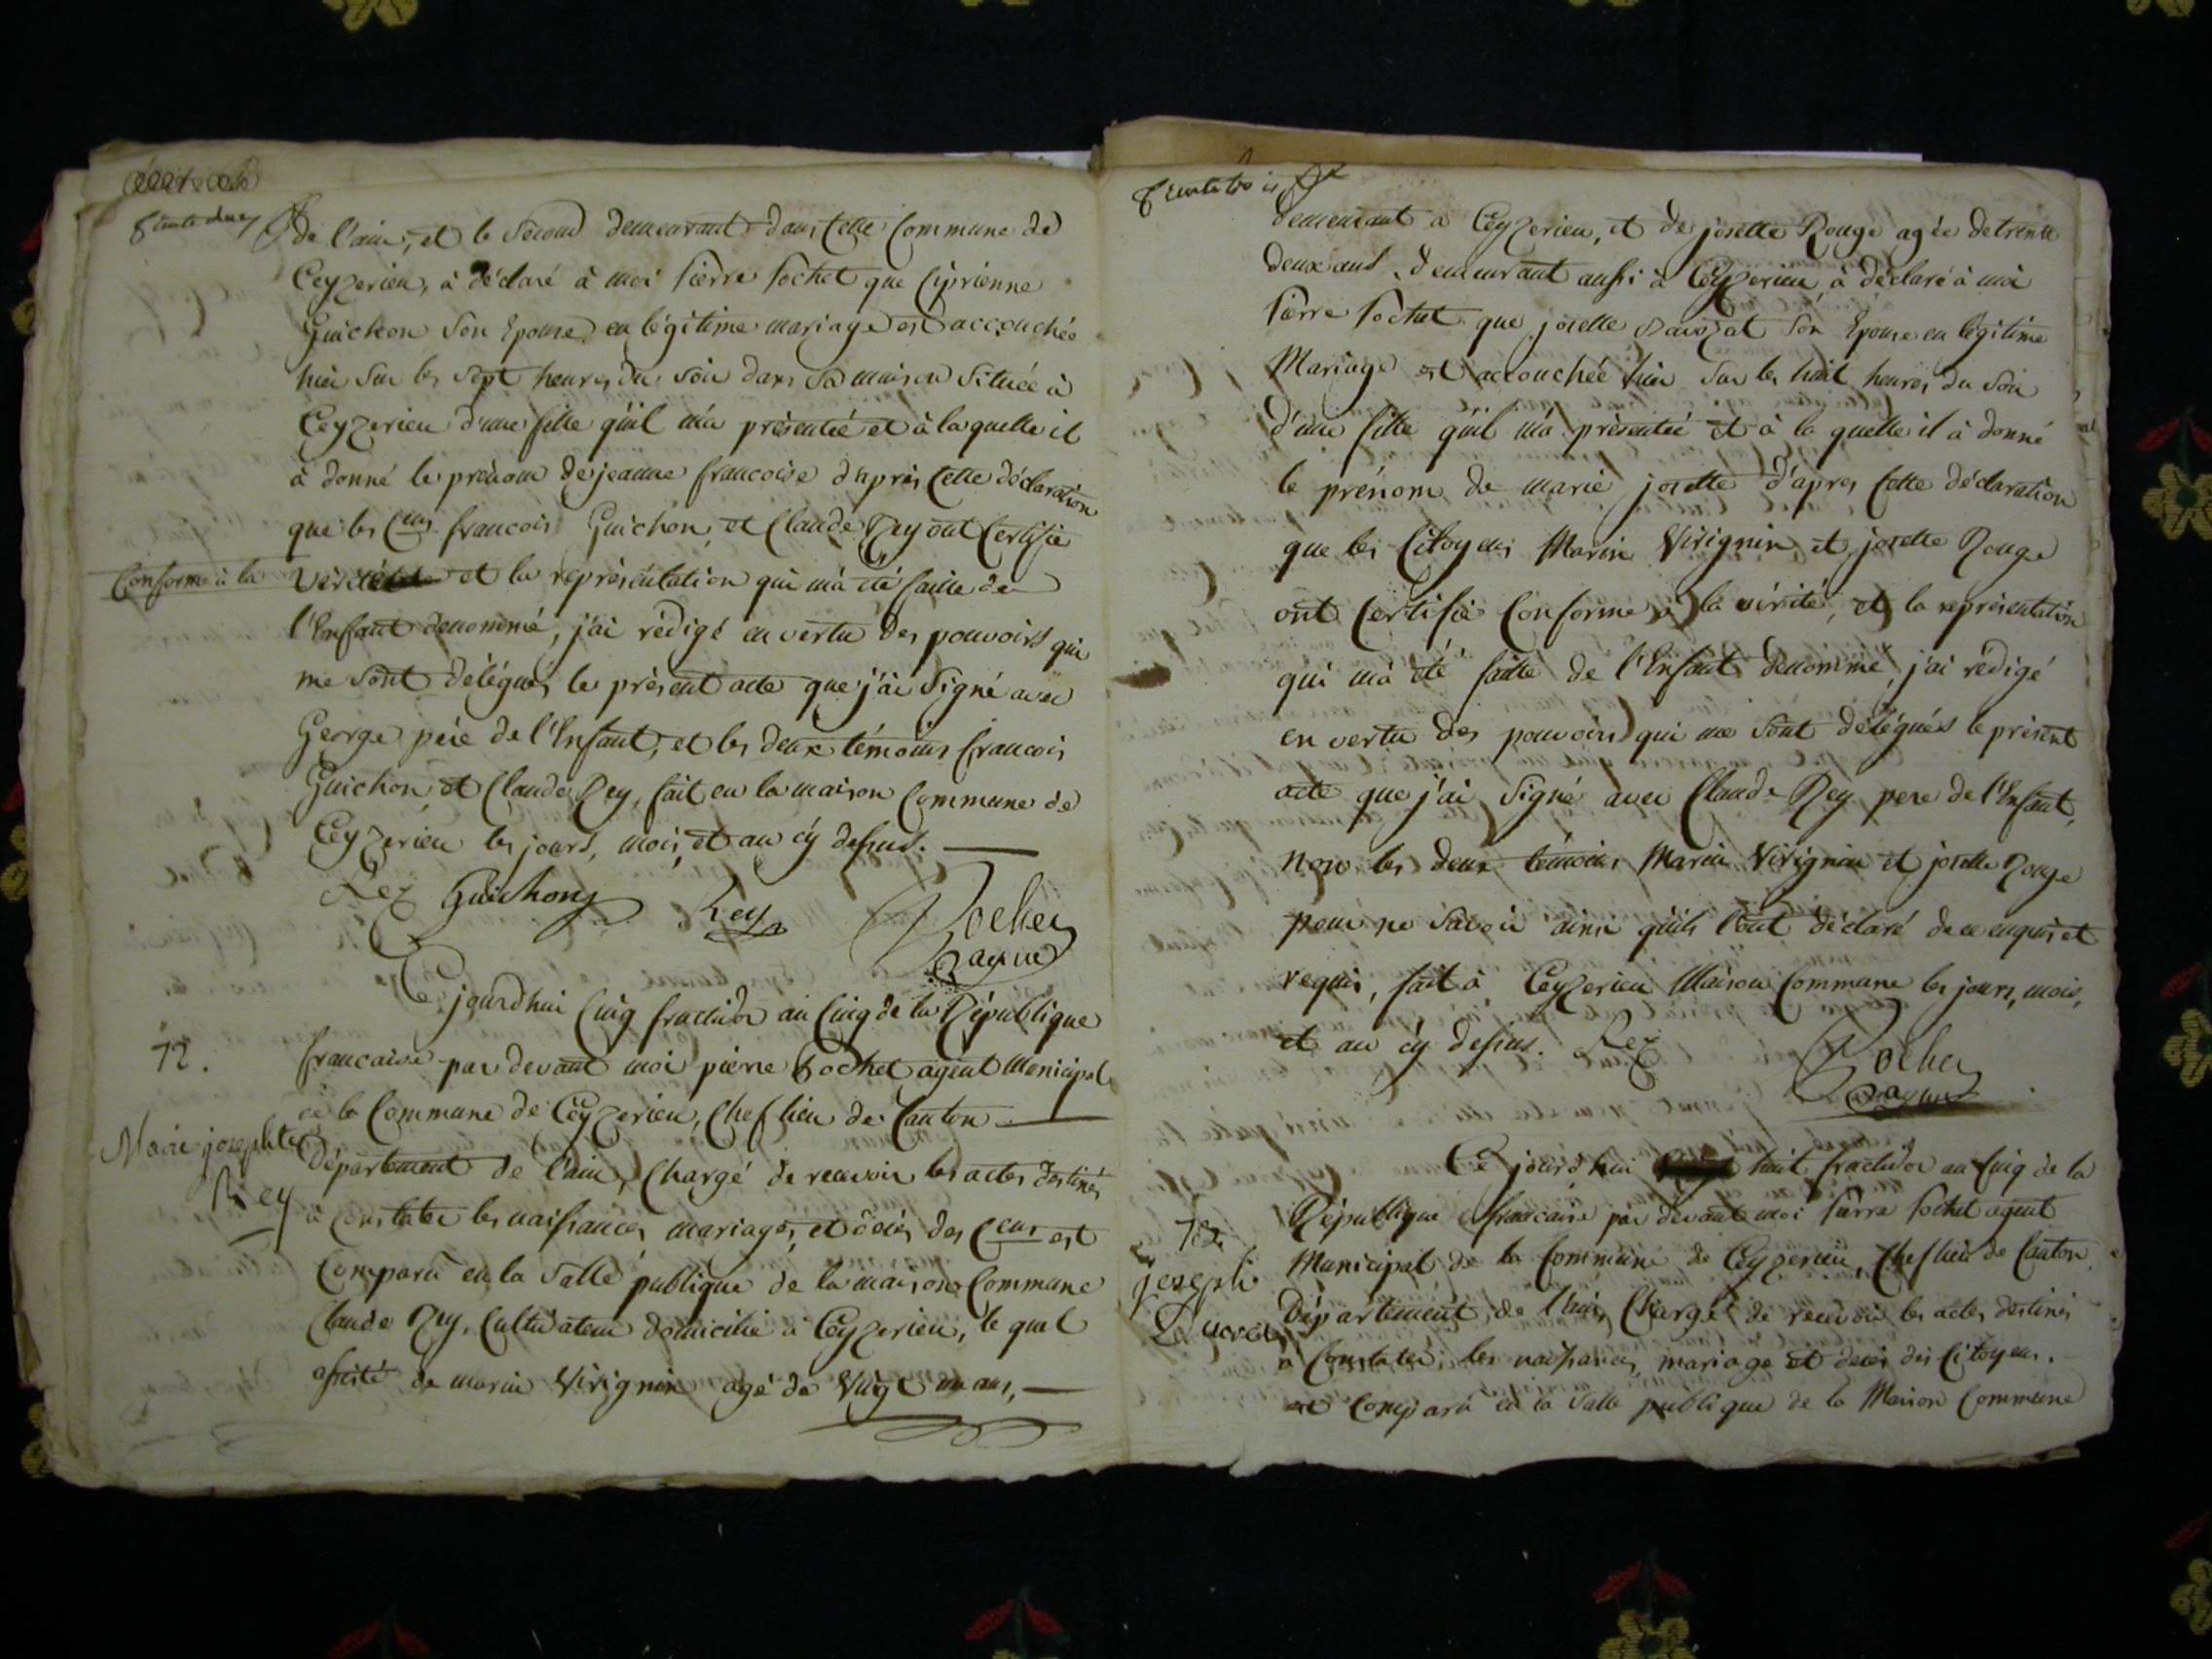 de l'ain, et le second demeurant dans cette Commune de
Ceyzerieu, à déclaré à moi Pierre Pochet que Ciprienne
Guichon son Epouse en légitime mariage est accouchée
hier sur les sept heures du soir dans sa maison située à
Ceyzerieu d'une fille qu'il m'a présentée et à laquelle il
à donné le prénom de jeanne francoise d'après Cette déclaration
que les Cens francois Guichon et Claude Rey ont Certifié
Conforme à la
vérité et la représentation qui m'a été faitte de
l'Enfant denommé, j'ai rédigé en vertu des pouvoirs qui
me sont délégués le présent acte que j'ai Signé avec
George père de l'Enfant, et les deux témoins francois
Guichon et Claude Rey, fait en la maison Commune de
Ceyzerieu les jours, mois, et an cÿ dessus.
Rey Guichon Rey Pochet
agent
Ce jourdhui Cinq fructidor an Cinq de la République
72.
francaise par devant moi pierre Pochet agent Municipal
de la Commune de Ceyzerieu, Chef lieu de Canton
Marie josephte
Rey
Département de l'ain, Chargé de recevoir les actes destinés
à constater les naissances, mariages, et décès des Cens est
Comparu en la Salle publique de la maison Commune
Claude Rey, Cultivateur domicilié à Ceyzerieu, le quel
assisté de marin Virignin agé de Vingt un ans,
demeurant à Ceyzerieu, et de josette Rouge agée de trente
deux ans, demeurant aussi à Ceyzerieu, à déclaré à moi
Pierre Pochet que josette son Epouse en légitime
Mariage est accouchée hier sur les huit heures du Soir
d'une fille qu'il m'a présentée et à la quelle il à donné
le prénom de marie josette d'après Cette déclaration
que les Citoyens Marin Virignin, et josette Rouge
ont Certifié Conforme à la vérité, et la représentation
qui m'a été faitte de l'Enfant denommé, j'ai rédigé
en vertu des pouvoirs qui me sont délégués le présent
acte que j'ai Signé avec Claude Rey pere de l'Enfant,
non les deux témoins Marin Virignin et josette Rouge
pour ne Savoir ainsi qu'ils l'ont déclaré de ce enquis et
requis, fait à Ceyzerieu Maison Commune les jours, mois,
et an cÿ dessus. Rey Pochet
agent
Ce jourd'hui huit fructidor an Cinq de la
73.
joseph
République francaise par devant moi Pierre Pochet agent
Municipal de la Commune de Ceyzerieu, Chef lieu de Canton
Département de l'ain, Chargé de recevoir les actes destinés
à Constater les naissances, mariage et décès des Citoyens.
est Comparu en la Salle publique de la Maison Commune